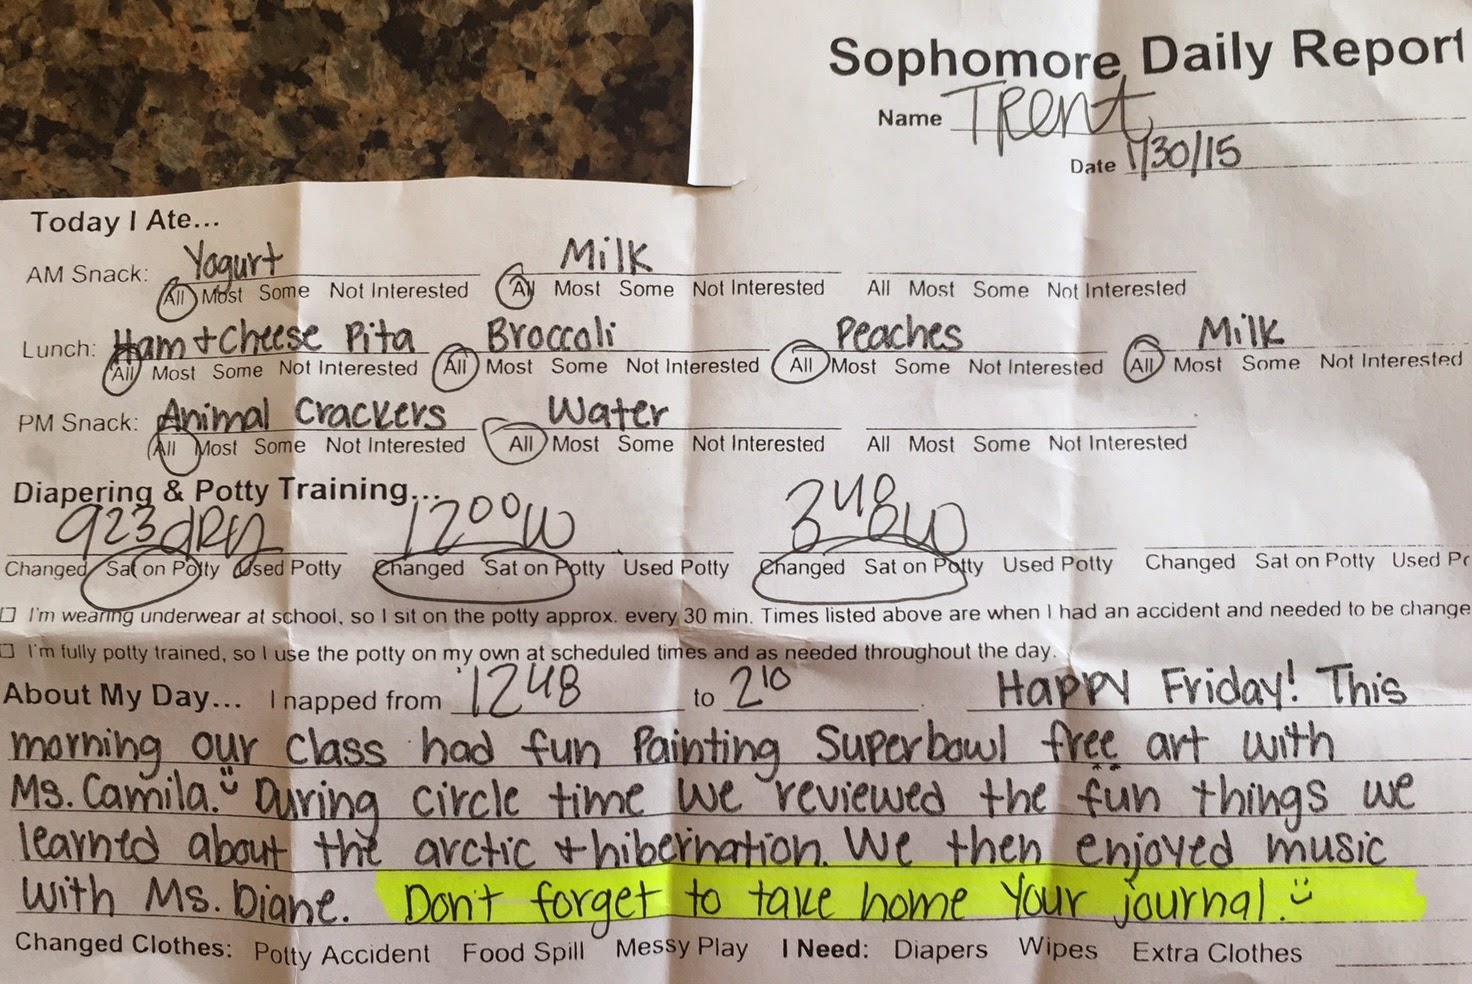 Sophomore Daily Report
Name Trent
Date 1/30/15
Today I Ate...
Yogurt Milk
AM Snack: All Most Some Not Interested All Most Some Not Interested All Most Some Not Interested
Ham + Cheese Pita Broccoli Peaches Milk
Lunch: All Most Some Not Interested All Most Some Not Interested All Most Some Not Interested All Most Some Not Interested
Animal Crackers Water
PM Snack: All Most Some Not Interested All Most Some Not Interested All Most Some Not Interested
Diapering & Potty Training...
923 dry 1200 W 348 W
Changed Sat on Potty Used Potty Changed Sat on Potty Used Potty Changed Sat on Potty Used Potty Changed Sat on Potty Used Po
I'm wearing underwear at school, so I sit on the potty approx. every 30 min. Times listed above are when I had an accident and needed to be change
I'm fully potty trained, so I use the potty on my own at scheduled times and as needed throughout the day.
About My Day... I napped from 1248 to 210. Happy Friday! This
morning our class had fun painting Superbowl free art with
Ms. Camila. During circle time we reviewed the fun things we
learned about the arctic + hibernation. We then enjoyed music
with Ms. Diane. Don't forget to take home your journal.
Changed Clothes: Potty Accident Food Spill Messy Play I Need: Diapers Wipes Extra Clothes